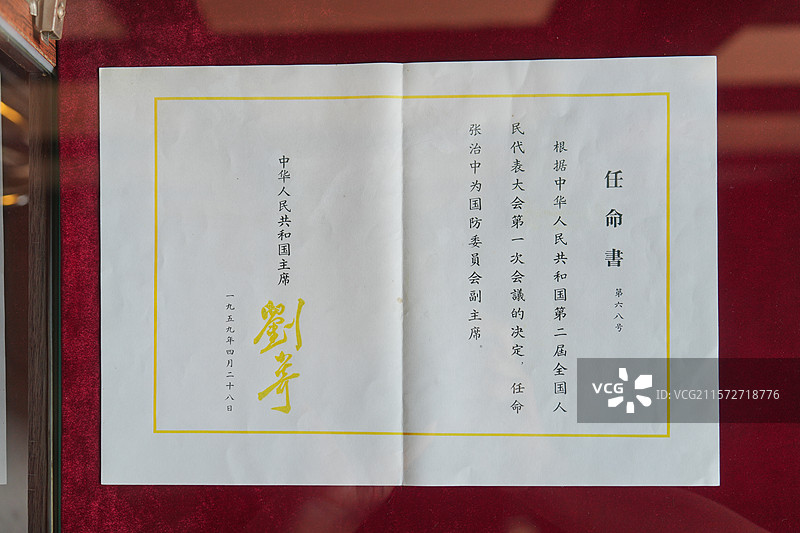 任命書
第六八号
根据中华人民共和国第二届全国人
民代表大会第一次会議的决定，任命
张治中为国防委員会副主席。
中华人民共和国主席
劉少奇
一九五九年四月二十八日
VCG
ID: VCG211572718776